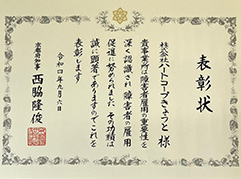 表彰状
株式会社ハートコープきょうと 様
貴事業所は障害者雇用の重要性を
深く認識され 障害者の雇用
促進に努められました その功績は
誠に顕著でありますのでこれを
表彰します
令和四年九月六日
京都府知事 西脇隆俊